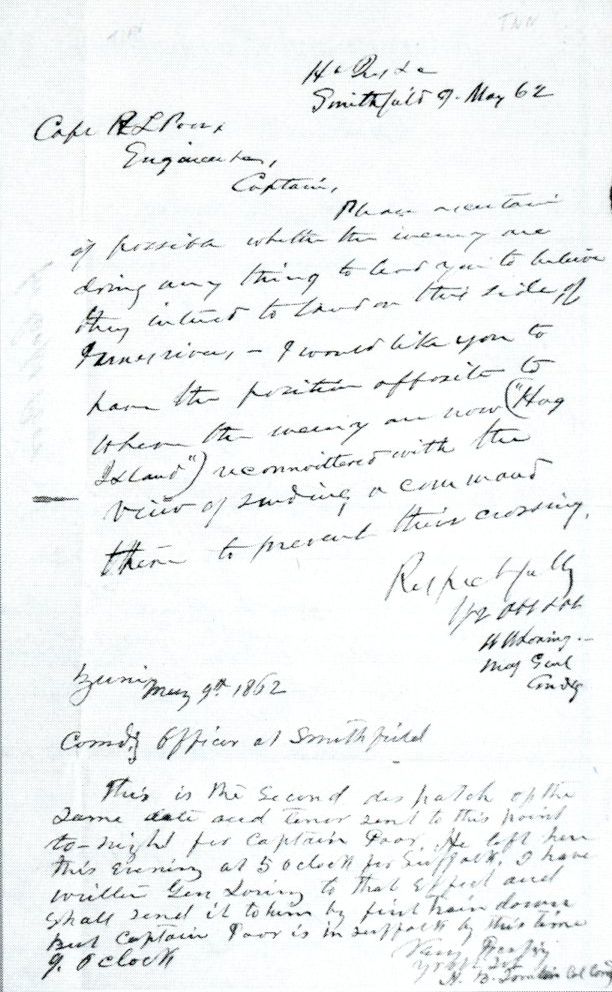 Hd Qrs &c
Smithfield 9. May 62
Capt R L Poor,
Engineers,
Captain,
Please ascertain
if possible whether the enemy are
doing any thing to lead you to believe
they intend to land on this side of
James river, – I would like you to
have the position opposite to
where the enemy are now ("Hog
Island") reconnoittered with the
view of sending a command
there to prevent their crossing.
Respectfully
Yr obt svt
W W Loring –
Maj Genl
Comdg
Zuni May 9th 1862
Comdg Officer at Smithfield
This is the second dispatch of the
same date and tenor sent to this point
to-night for Captain Poor. He left here
this Evening at 5 oclock for Suffolk, I have
written Gen Loring to that Effect and
shall send it to him by first train down
But Captain Poor is in Suffolk by this time
9. oClock
Very Respfy
Yr obt svt
H. B. Tomlin Col Comdg